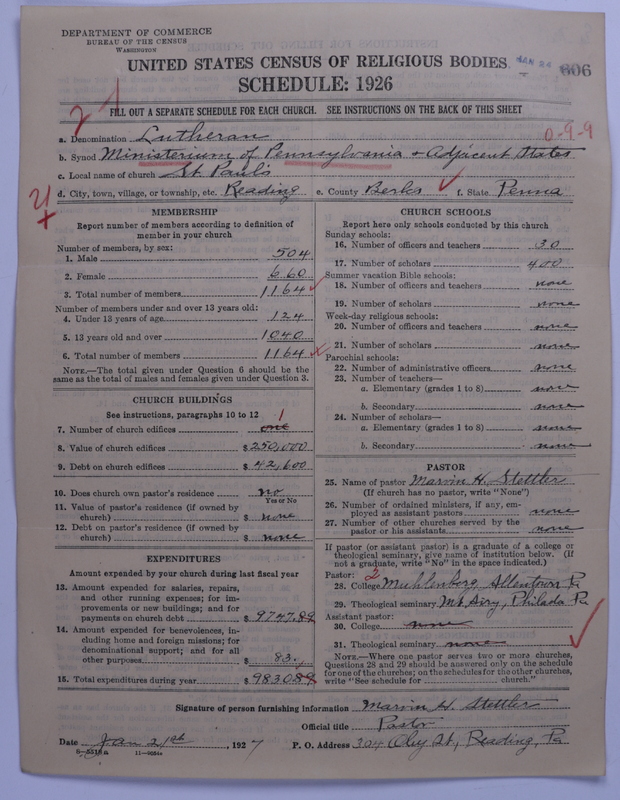 DEPARTMENT OF COMMERCE
BUREAU OF THE CENSUS
WASHINGTON
JAN 24
606
UNITED STATES CENSUS OF RELIGIOUS BODIES
SCHEDULE: 1926
FILL OUT A SEPARATE SCHEDULE FOR EACH CHURCH. SEE INSTRUCTIONS ON THE BACK OF THIS SHEET
a. Denomination Lutheran
0-9-9
b. Synod Ministerium of Pennsylvania + Adjacent States
c. Local name of church St Paul's
d. City, town, village, or township, etc. Reading e. County Berks f. State Penna
MEMBERSHIP
Report number of members according to definition of member in your church
Number of members, by sex:
1. Male 504
2. Female 660
3. Total number of members 1164
Number of members under and over 13 years old:
4. Under 13 years of age 124
5. 13 years old and over 1040
6. Total number of members 1164
NOTE.—The total given under Question 6 should be the same as the total of males and females given under Question 3.
CHURCH BUILDINGS
See instructions, paragraphs 10 to 12
7. Number of church edifices one 1
8. Value of church edifices $ 250,000
9. Debt on church edifices $ 42,600
10. Does church own pastor's residence no
Yes or No
11. Value of pastor's residence (if owned by church) $ none
12. Debt on pastor's residence (if owned by church) $ none
EXPENDITURES
Amount expended by your church during last fiscal year
13. Amount expended for salaries, repairs, and other running expenses; for improvements or new buildings; and for payments on church debt $ 9747.89
14. Amount expended for benevolences, including home and foreign missions; for denominational support; and for all other purposes $ 83.
15. Total expenditures during year $ 9830.89
CHURCH SCHOOLS
Report here only schools conducted by this church
Sunday schools:
16. Number of officers and teachers 30
17. Number of scholars 400
Summer vacation Bible schools:
18. Number of officers and teachers none
19. Number of scholars none
Week-day religious schools:
20. Number of officers and teachers none
21. Number of scholars none
Parochial schools:
22. Number of administrative officers none
23. Number of teachers—
a. Elementary (grades 1 to 8) none
b. Secondary none
24. Number of scholars—
a. Elementary (grades 1 to 8) none
b. Secondary none
PASTOR
25. Name of pastor Marvin H. Stettler
(If church has no pastor, write "None")
26. Number of ordained ministers, if any, employed as assistant pastors none
27. Number of other churches served by the pastor or his assistants none
If pastor (or assistant pastor) is a graduate of a college or theological seminary, give name of institution below. (If not a graduate, write "No" in the space indicated.)
Pastor: 2
28. College Muhlenberg, Allentown Pa
29. Theological seminary Mt Airy, Philada Pa
Assistant pastor:
30. College none
31. Theological seminary none
NOTE.—Where one pastor serves two or more churches, Questions 28 and 29 should be answered only on the schedule for one of the churches; on the schedules for the other churches, write "See schedule for church."
Signature of person furnishing information Marvin H. Stettler
Official title Pastor
Date Jan 21st, 1927 P. O. Address 304 Oley St, Reading, Pa
11—9051a